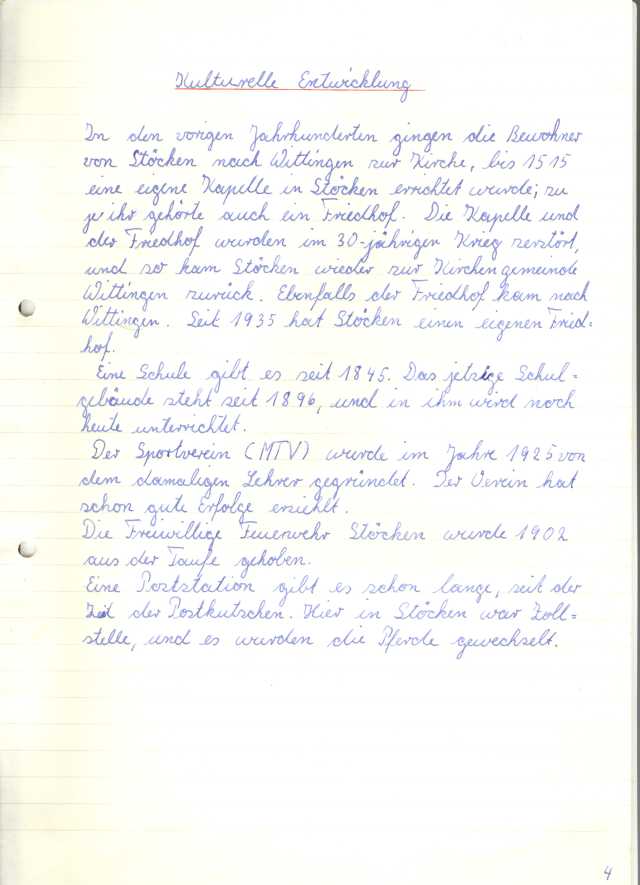 Kulturelle Entwicklung
In den vorigen Jahrhunderten gingen die Bewohner
von Stöcken nach Wittingen zur Kirche, bis 1515
eine eigene Kapelle in Stöcken errichtet wurde; zu
ihr gehörte auch ein Friedhof. Die Kapelle und
der Friedhof wurden im 30-jährigen Krieg zerstört,
und so kam Stöcken wieder zur Kirchengemeinde
Wittingen zurück. Ebenfalls der Friedhof kam nach
Wittingen. Seit 1935 hat Stöcken einen eigenen Fried=
hof.
Eine Schule gibt es seit 1845. Das jetzige Schul=
gebäude steht seit 1896, und in ihm wird noch
heute unterrichtet.
Der Sportverein (MTV) wurde im Jahre 1925 von
dem damaligen Lehrer gegründet. Der Verein hat
schon gute Erfolge erziehlt.
Die Freiwillige Feuerwehr Stöcken wurde 1902
aus der Taufe gehoben.
Eine Poststation gibt es schon lange, seit der
Zeit der Postkutschen. Hier in Stöcken war Zoll=
stelle, und es wurden die Pferde gewechselt.
4